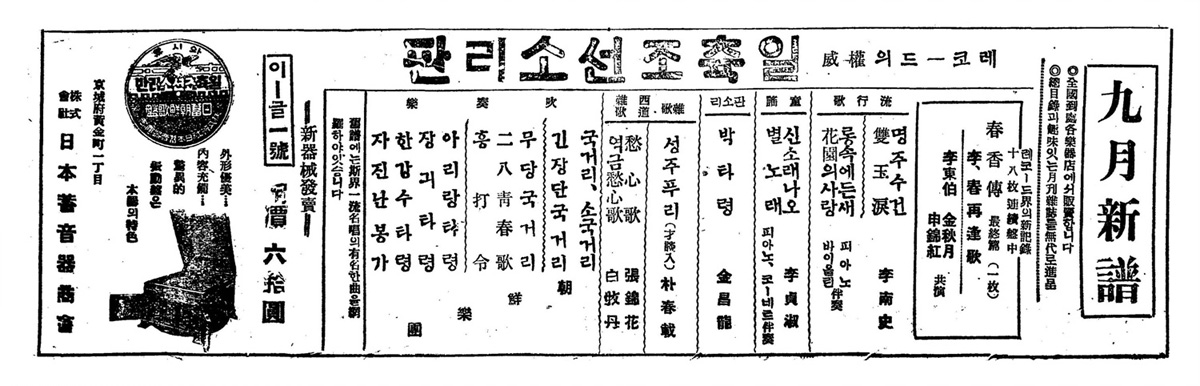 九月新譜
◎全國到處各樂器店에셔販賣합니다
◎總目錄과趣味잇는月刊雜誌를無代로進呈
레코ー드의 權威
일츅조선소리판
레코ー드界의新記錄
十八枚連續盤中
春香傳 最終篇(一枚)
李、春再逢歌
李東伯 金秋月 申錦紅 共演
流行歌
명주수건
雙玉淚
李南史
롱속에든새
花園의사랑
피아노 바이올린 伴奏
童謠
신소래나오
별노래
李貞淑
피아노、코ー비르伴奏
판소리
박타령
金昌龍
雜歌
성주푸리(才談入)
朴春載
西道雜歌
愁心歌
역금愁心歌
張錦花
白牧丹
吹奏樂
국거리、소국거리
긴장단국거리
무당국거리
二八靑春歌
흥打令
아리랑타령
장긔타령
한감수타령
자진난봉가
朝鮮樂團
舊譜에는斯界一流名唱의有名한曲을網羅하야잇습니다
新器械發賣
이ー글一號
價六拾圓
外形優美…
內容充實…
驚異的
振動盤은
本器의特色
와시로
일츅죠션소리반
京城府黃金町一丁目
株式會社 日本蓄音器商會